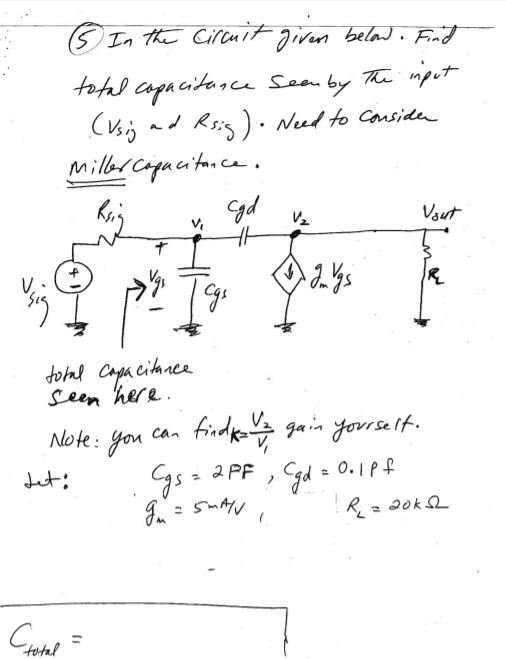 ⑤ In the circuit given below. Find
total capacitance seen by the input
(Vsig and Rsig). Need to consider
Miller Capacitance.
Rsig V₁ Cgd V₂ Vout
+
Vsig + - Vgs Cgs gmVgs RL
-
total capacitance
seen here.
Note: you can find K=V₂/V₁ gain yourself.
Let: Cgs = 2PF, Cgd = 0.1Pf
gm = 5mA/V, RL = 20kΩ
Ctotal =